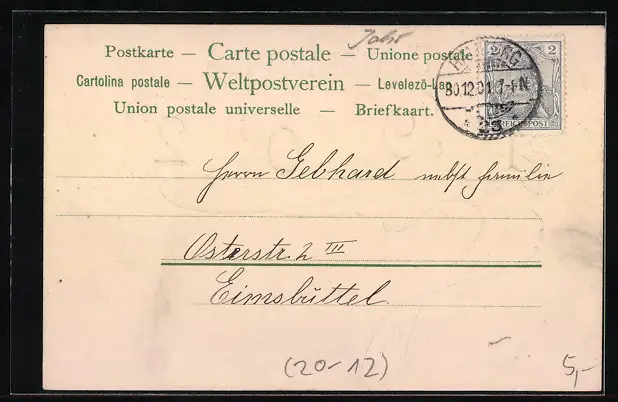 Jahr
Postkarte — Carte postale — Unione postale
Cartolina postale — Weltpostverein — Levelező-La
Union postale universelle — Briefkaart.
2 2
HAMBURG
30.12.01. 7-8 N
* 23
REICHSPOST
Herrn Gebhard nebst Familie
Osterstr. 2 III
Eimsbüttel.
(20-12)
5,-